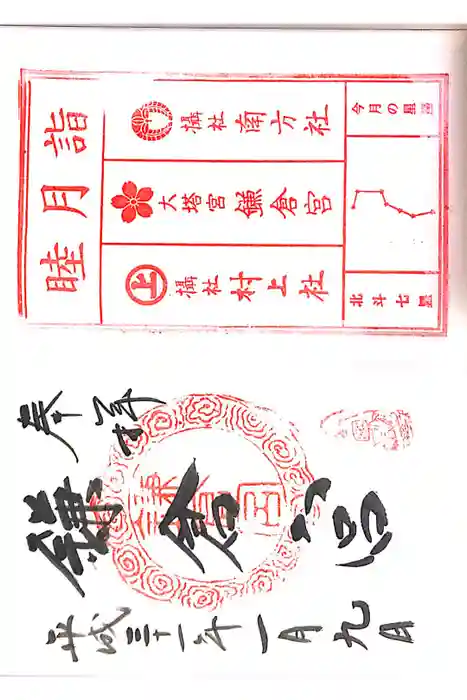 睦月詣
攝社 南方社
大塔宮 鎌倉宮
上
攝社 村上社
今月の星
北斗七星
奉拝
鎌倉宮
平成三十一年一月九日